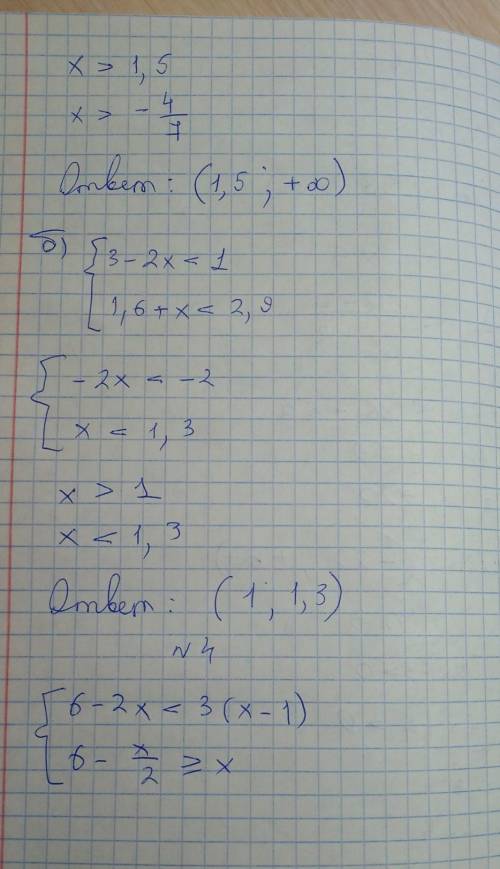 x > 1,5
x > -4/7
Ответ: (1,5; +∞)
б) { 3 - 2x < 1
1,6 + x < 2,9
{ -2x < -2
x < 1,3
x > 1
x < 1,3
Ответ: (1; 1,3)
№4
{ 6 - 2x < 3(x - 1)
6 - x/2 ≥ x